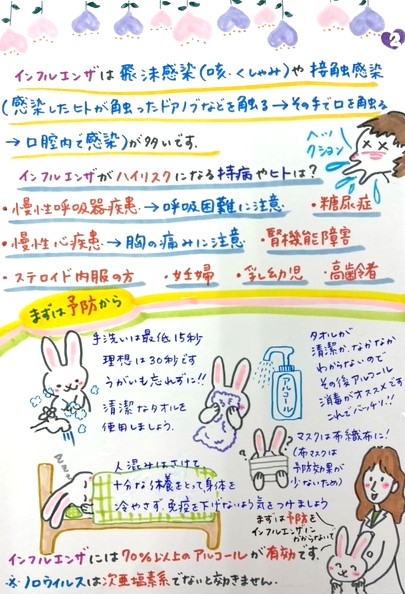 2
インフルエンザは飛沫感染(咳・くしゃみ)や接触感染
(感染したヒトが触ったドアノブなどを触る→その手で口を触る
→口腔内で感染)が多いです。
ヘックション
インフルエンザがハイリスクになる持病やヒトは?
・慢性呼吸器疾患→呼吸困難に注意 ・糖尿症
・慢性心疾患→胸の痛みに注意 ・腎機能障害
・ステロイド内服の方 ・妊婦 ・乳幼児 ・高齢者
まずは予防から
手洗いは最低15秒
理想は30秒です
うがいも忘れずに!!
清潔なタオルを
使用しましょう。
アルコール
タオルが
清潔か、なかなか
わからないので
その後アルコール
消毒がオススメです
これでバッチリ!!
マスクは不織布に!
(布マスクは
予防効果が
少ないため)
? ?
zzz
人混みはさけて
十分な休養をとって身体を
冷やさず、免疫を下げないよう気をつけましょう
まずは予防を
インフルエンザに
かからないで
インフルエンザには70%以上のアルコールが有効です。
※ノロウイルスは次亜塩素系でないと効きません。